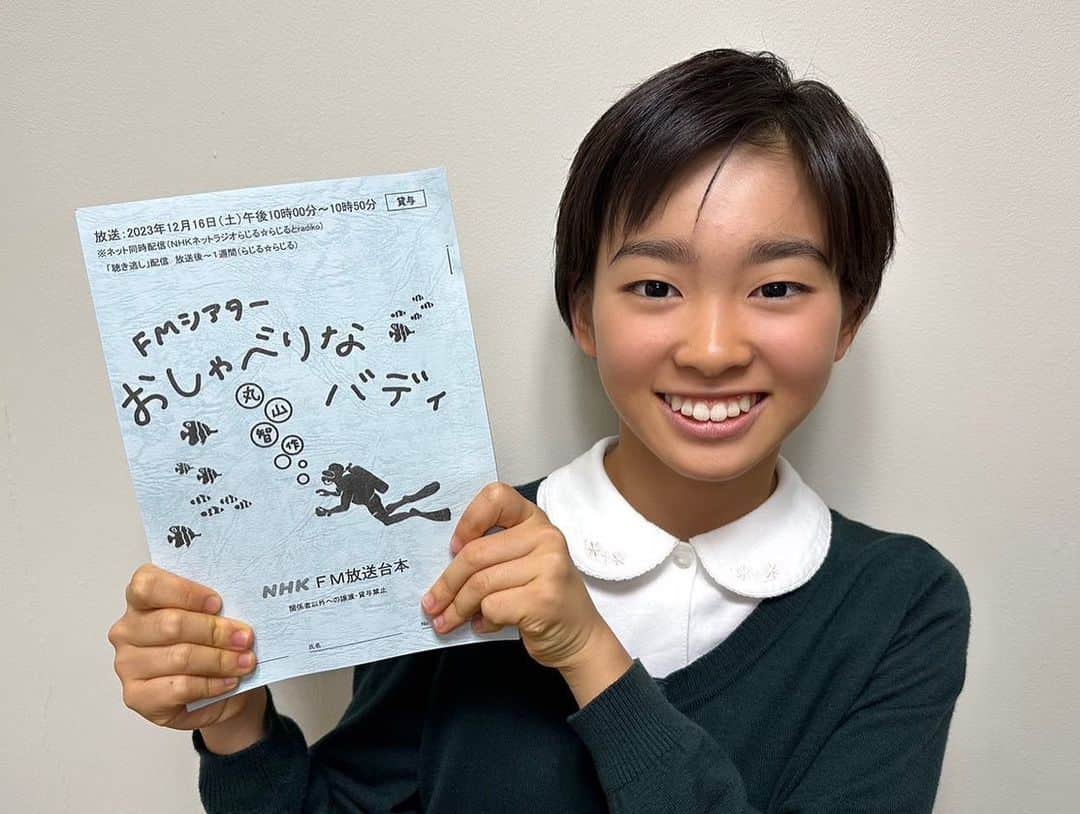 放送：2023年12月16日（土）午後10時00分～10時50分
貸与
※ネット同時配信（NHKネットラジオらじる☆らじるとradiko）
「聴き逃し」配信 放送後～1週間（らじる☆らじる）
FMシアター
おしゃべりな
バディ
丸山智作
NHK FM放送台本
関係者以外への譲渡・貸与禁止
氏名